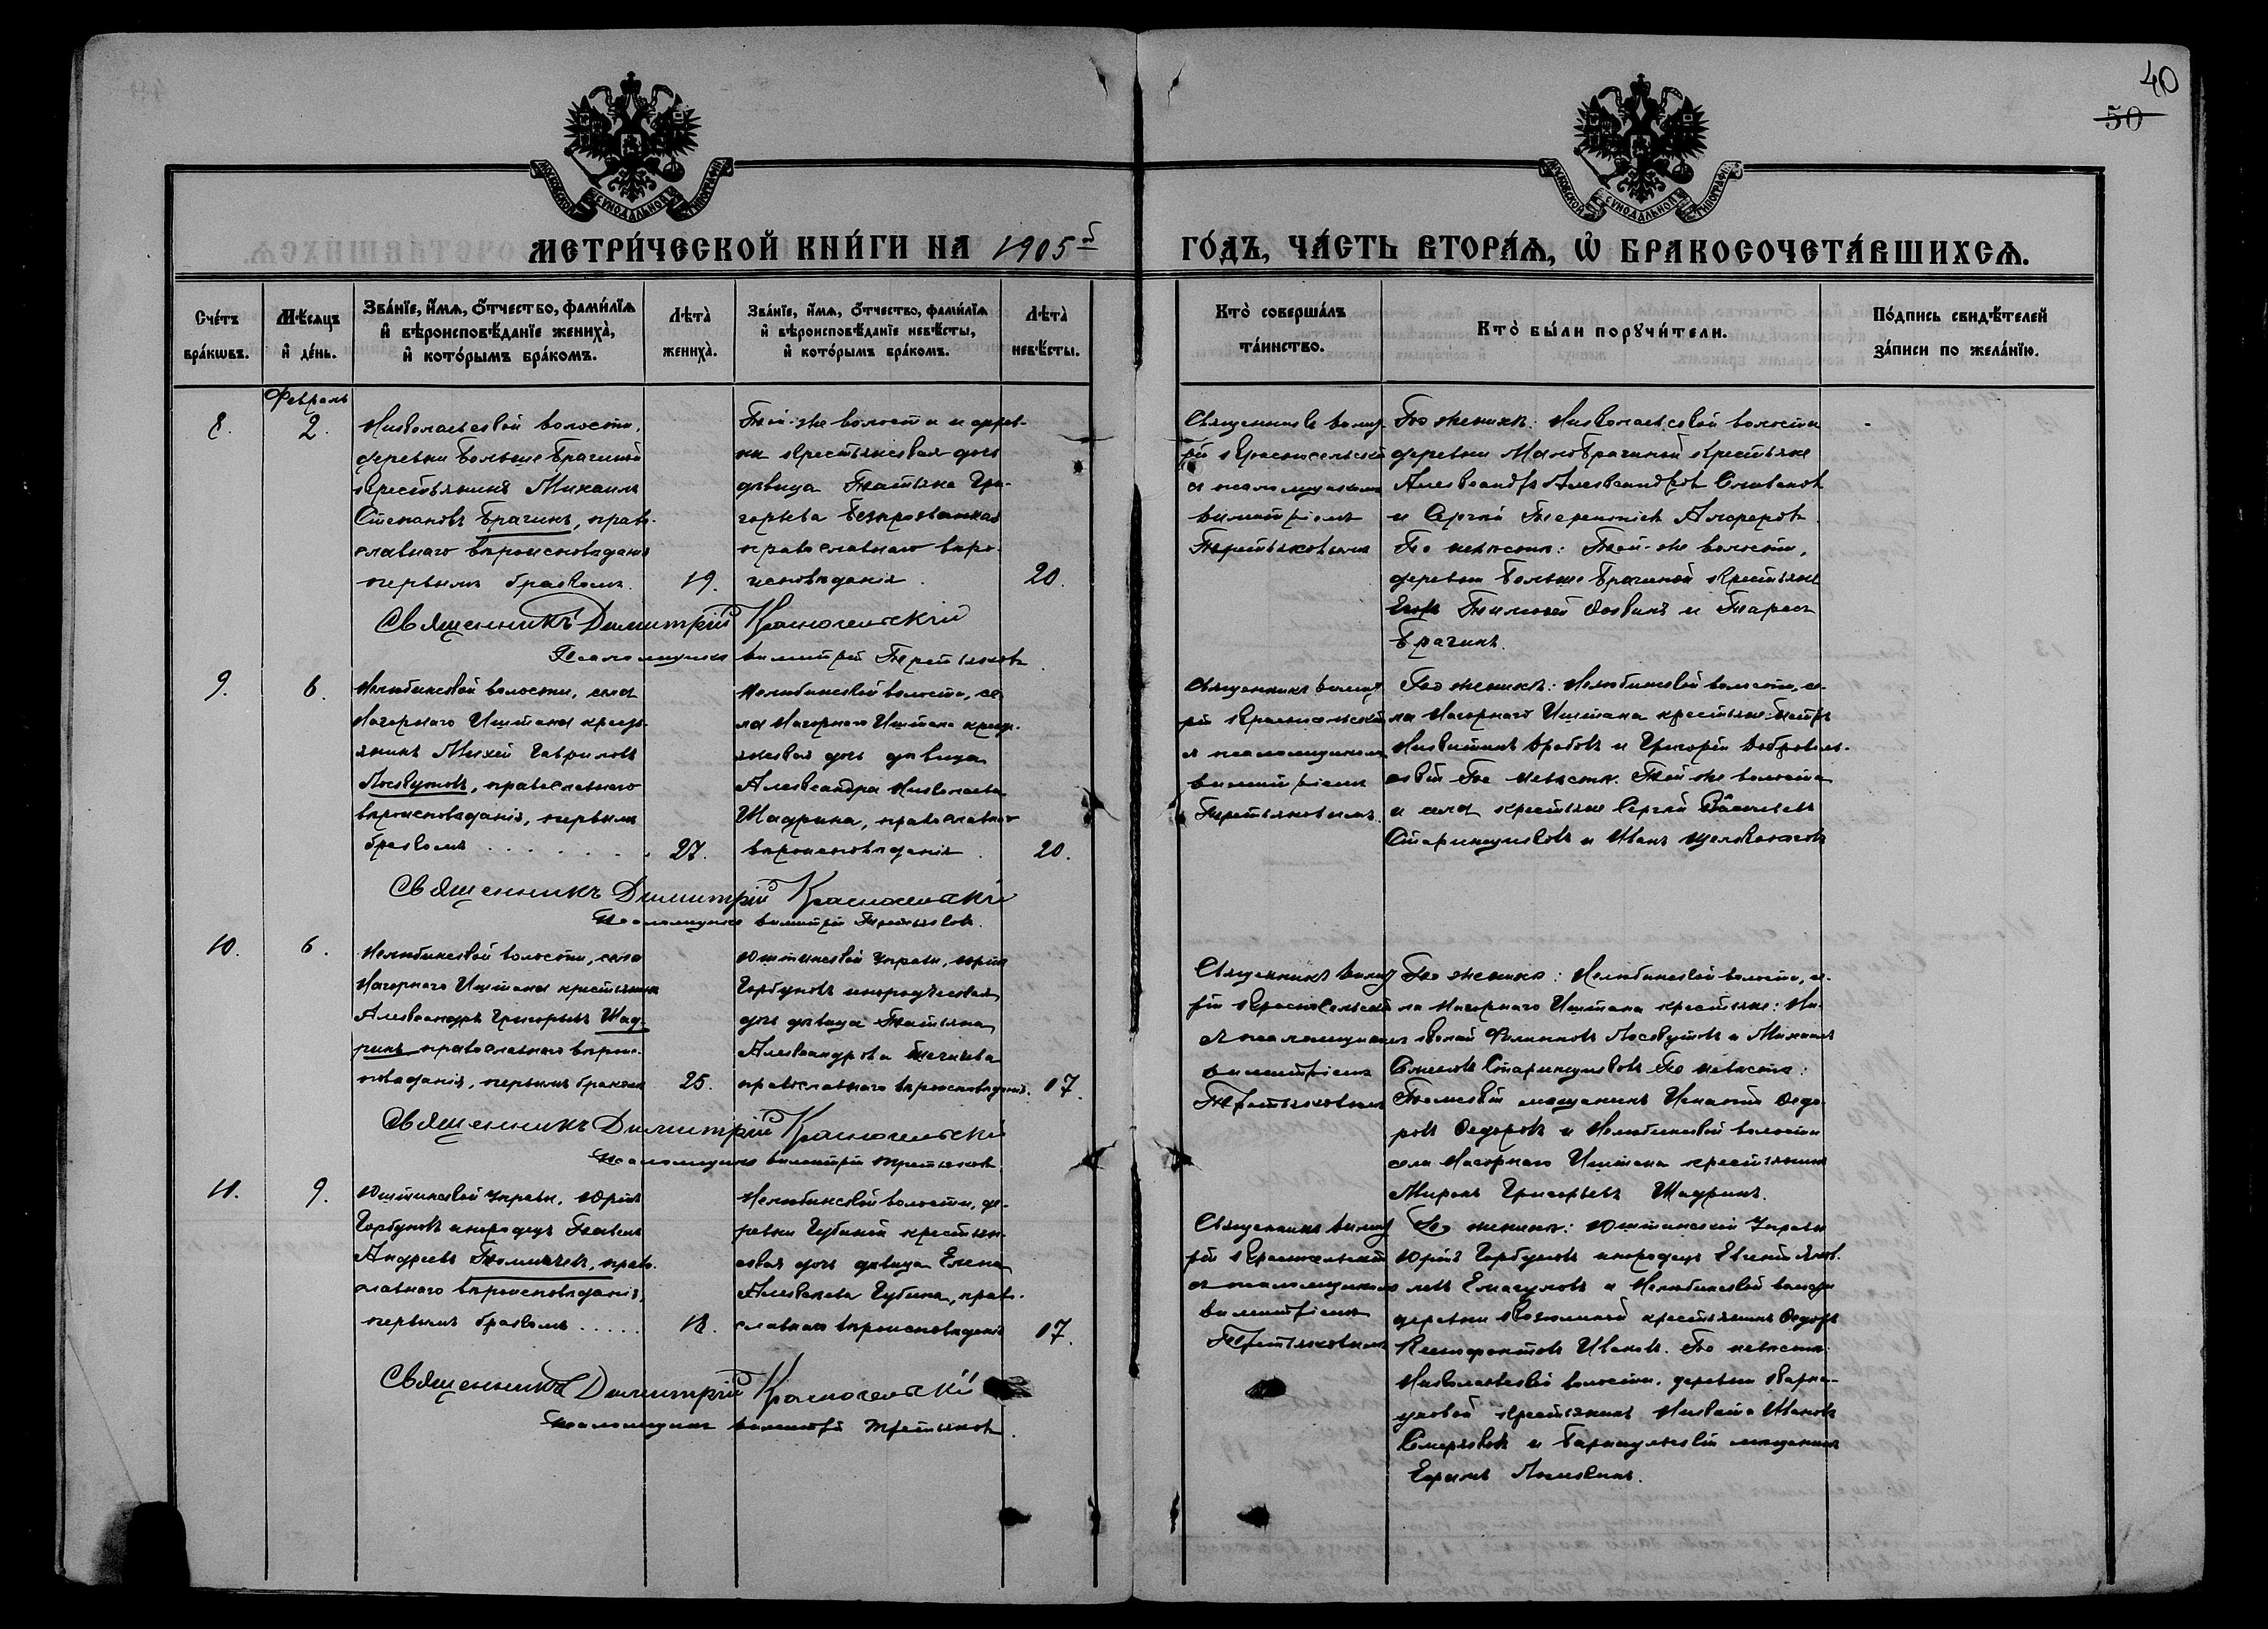 40
50
МОСКОВСКОЙ СѴНОДАЛЬНОЙ ТИПОГРАФІИ
МОСКОВСКОЙ СѴНОДАЛЬНОЙ ТИПОГРАФІИ
МЕТРИ́ЧЕСКОЙ КНИ́ГИ НА 1905й
ГО́ДЪ, ЧА́СТЬ ВТОРА́Ѧ, Ѽ БРАКОСОЧЕТА́ВШИХСѦ.
Сче́тъ бра́кѡвъ.
Мѣ́сяцъ и҆ де́нь.
Зва́нїе, и҆́мѧ, ѻ҆́тчество, фами́лїѧ
и҆ вѣроисповѣ́данїе жениха̀,
и҆ кото́рымъ бра́комъ.
Лѣта̀ жениха̀.
Зва́нїе, и҆́мѧ, ѻ҆́тчество, фами́лїѧ
и҆ вѣроисповѣ́данїе невѣ́сты,
и҆ кото́рымъ бра́комъ.
Лѣта̀ невѣ́сты.
Кто̀ соверша́лъ
та́инство.
Кто̀ бы́ли порꙋчи́тели.
По́дпись свидѣ́телей
за́писи по жела́нїю.
Февраль
8.
2.
Николаевской волости,
деревни Больше Брагиной
крестьянинъ Михаилъ
Степановъ Брагинъ, право-
славнаго вѣроисповѣданія
первымъ бракомъ.
19.
Той-же волости и дерев-
ни крестьянская дочь
дѣвица Татьяна Гри-
горьева
православнаго вѣро-
исповѣданія.
20.
Священникъ Димит-
рій Красносельскій
съ псаломщикомъ
Димитріемъ
Третьяковымъ
По женихѣ: Николаевской волости
деревни Мало Брагиной крестьяне
Александръ Александровъ
и Сергей Алферовъ
По невѣстѣ: Той-же волости,
деревни Больше Брагиной крестьяне
Тимофей и Тарасъ
Брагинъ.
Священникъ Димитрій Красносельскій
Псаломщикъ Димитрій Третьяковъ.
9.
6.
Нелюбинской волости, села
Нагорнаго Иштана кресть-
янинъ Михей Гавриловъ
Лоскутовъ, православнаго
вѣроисповѣданія, первымъ
бракомъ . . . . . .
27.
Нелюбинской волости, се-
ла Нагорнаго Иштана кресть-
янская дочь дѣвица
Александра Николаева
Шадрина, православнаго
вѣроисповѣданія.
20.
Священникъ Димит-
рій Красносельскій
съ псаломщикомъ
Димитріемъ
Третьяковымъ.
По женихѣ: Нелюбинской волости, се-
ла Нагорнаго Иштана крестьяне: Петръ
Никитинъ и Григорій Доброволь-
скій По невѣстѣ: Той-же волости
и села крестьяне Сергей Васильевъ
Старинщиковъ и Иванъ
Священникъ Димитрій Красносельскій
Псаломщикъ Димитрій Третьяковъ.
10.
6.
Нелюбинской волости, села
Нагорнаго Иштана крестьянинъ
Александръ Григорьевъ Шад-
ринъ православнаго вѣроис-
повѣданія, первымъ бракомъ
25.
Юштинской управы, юртъ
Горбуновъ инородческая
дочь дѣвица Татьяна
Александрова
православнаго вѣроисповѣданія.
17.
Священникъ Димит-
рій Красносельскій
съ псаломщикомъ
Димитріемъ
Третьяковымъ
По женихѣ: Нелюбинской волости, се-
ла Нагорнаго Иштана крестьяне: Ни-
колай Филиповъ Лоскутовъ и Михаилъ
Семеновъ Старинщиковъ По невѣстѣ:
Томскій мѣщанинъ Игнатій Ѳедо-
ровъ Ѳедоровъ и Нелюбинской волости
села Нагорнаго Иштана крестьянинъ
Миронъ Григорьевъ Шадринъ.
Священникъ Димитрій Красносельскій
Псаломщикъ Димитрій Третьяковъ
11.
9.
Юштинской управы, юртъ
Горбуновъ инородецъ Павелъ
Андреевъ право-
славнаго вѣроисповѣданія,
первымъ бракомъ . . . . .
18.
Нелюбинской волости, де-
ревни Губиной крестьян-
ская дочь дѣвица Елена
Алексеева Губина, право-
славнаго вѣроисповѣданія
17.
Священникъ Димит-
рій Красносельскій
съ псаломщикомъ
Димитріемъ
Третьяковымъ
По женихѣ: Юштинской Управы
Юртъ Горбуновъ инородецъ Евгеній Яков-
левъ и Нелюбинской волости
деревни крестьянинъ Ѳедоръ
Ивановъ. По невѣстѣ:
Николаевской волости, деревни
крестьянинъ Никита Ивановъ
и Барнаульскій мѣщанинъ
Ефимъ
Священникъ Димитрій Красносельскій
Псаломщикъ Димитрій Третьяковъ.